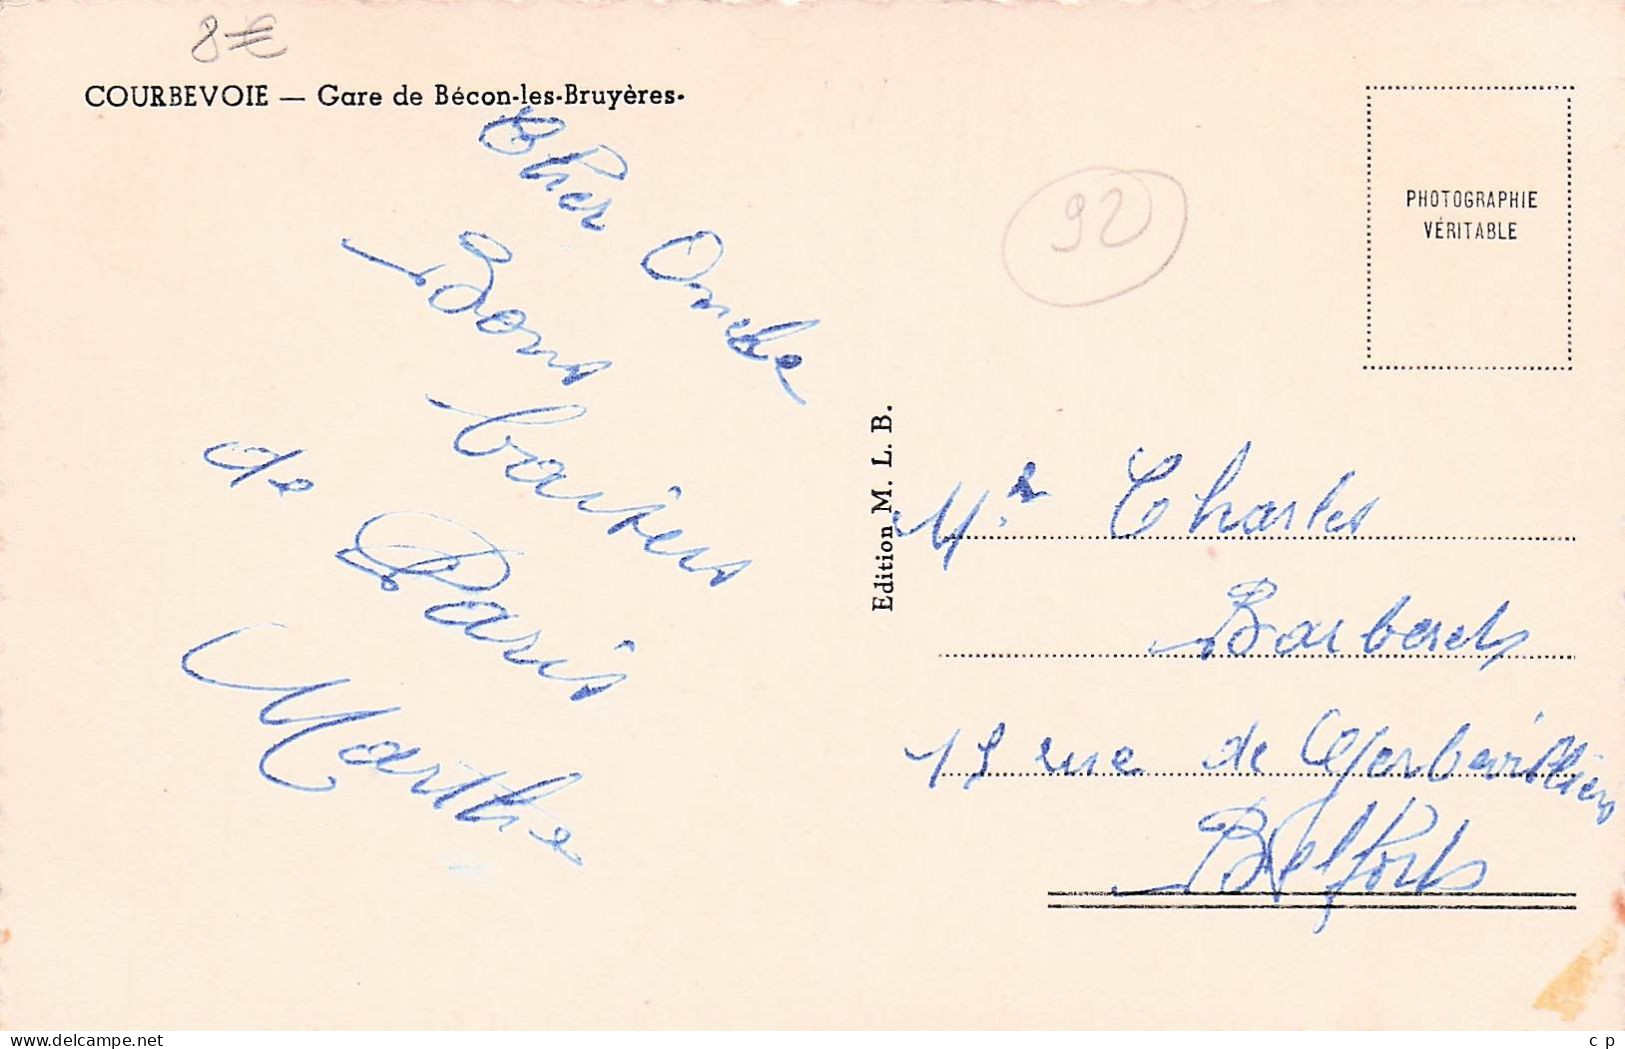 8€
COURBEVOIE — Gare de Bécon-les-Bruyères.
Cher Oncle
Bons baisers
de Paris
Marthe
92
PHOTOGRAPHIE
VÉRITABLE
Edition M. L. B.
Mr Charles
rue de
Belfort
delcampe.net
c p